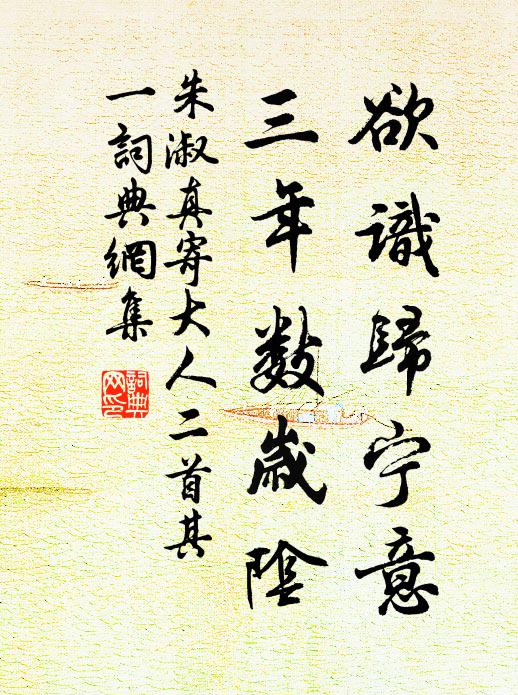 欲識歸宁意
三年数歲陰
朱淑真寄大人二首其
一詞典網集
詞典
网印